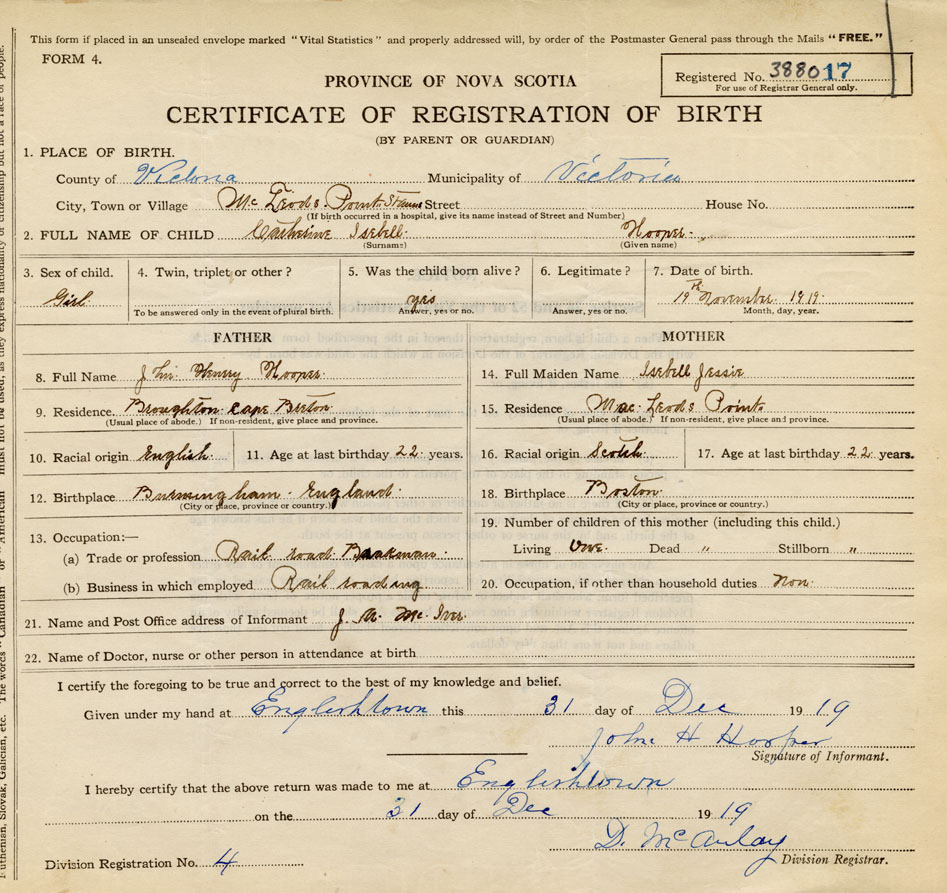 This form if placed in an unsealed envelope marked "Vital Statistics" and properly addressed will, by order of the Postmaster General pass through the Mails "FREE."
FORM 4.
PROVINCE OF NOVA SCOTIA
Registered No. 388017
For use of Registrar General only.
CERTIFICATE OF REGISTRATION OF BIRTH
(BY PARENT OR GUARDIAN)
1. PLACE OF BIRTH.
County of Victoria Municipality of Victoria
City, Town or Village Mc Leods Point Street House No.
(If birth occurred in a hospital, give its name instead of Street and Number)
2. FULL NAME OF CHILD Catherine Isebell Hooper
(Surname) (Given name)
3. Sex of child. 4. Twin, triplet or other? 5. Was the child born alive? 6. Legitimate? 7. Date of birth.
Girl yes 19th November 1919
To be answered only in the event of plural birth. Answer, yes or no. Answer, yes or no. Month, day, year.
FATHER MOTHER
8. Full Name John Henry Hooper 14. Full Maiden Name Isebell Jessie
9. Residence. Broughton Cape Breton 15. Residence Mac Leods Point
(Usual place of abode.) If non-resident, give place and province. (Usual place of abode.) If non-resident, give place and province.
10. Racial origin English 11. Age at last birthday 22 years. 16. Racial origin Scotch 17. Age at last birthday 22 years.
12. Birthplace Burmingham England 18. Birthplace Boston
(City or place, province or country.) (City or place, province or country.)
13. Occupation:— 19. Number of children of this mother (including this child.)
(a) Trade or profession Rail road Braakman Living One Dead " Stillborn "
(b) Business in which employed Rail roading 20. Occupation, if other than household duties Non
21. Name and Post Office address of Informant J. A. Mc Iver
22. Name of Doctor, nurse or other person in attendance at birth
I certify the foregoing to be true and correct to the best of my knowledge and belief.
Given under my hand at Englishtown this 31 day of Dec 1919
John H Hooper
Signature of Informant.
I hereby certify that the above return was made to me at Englishtown
on the 31 day of Dec 1919
D. McAulay
Division Registrar.
Division Registration No. 4